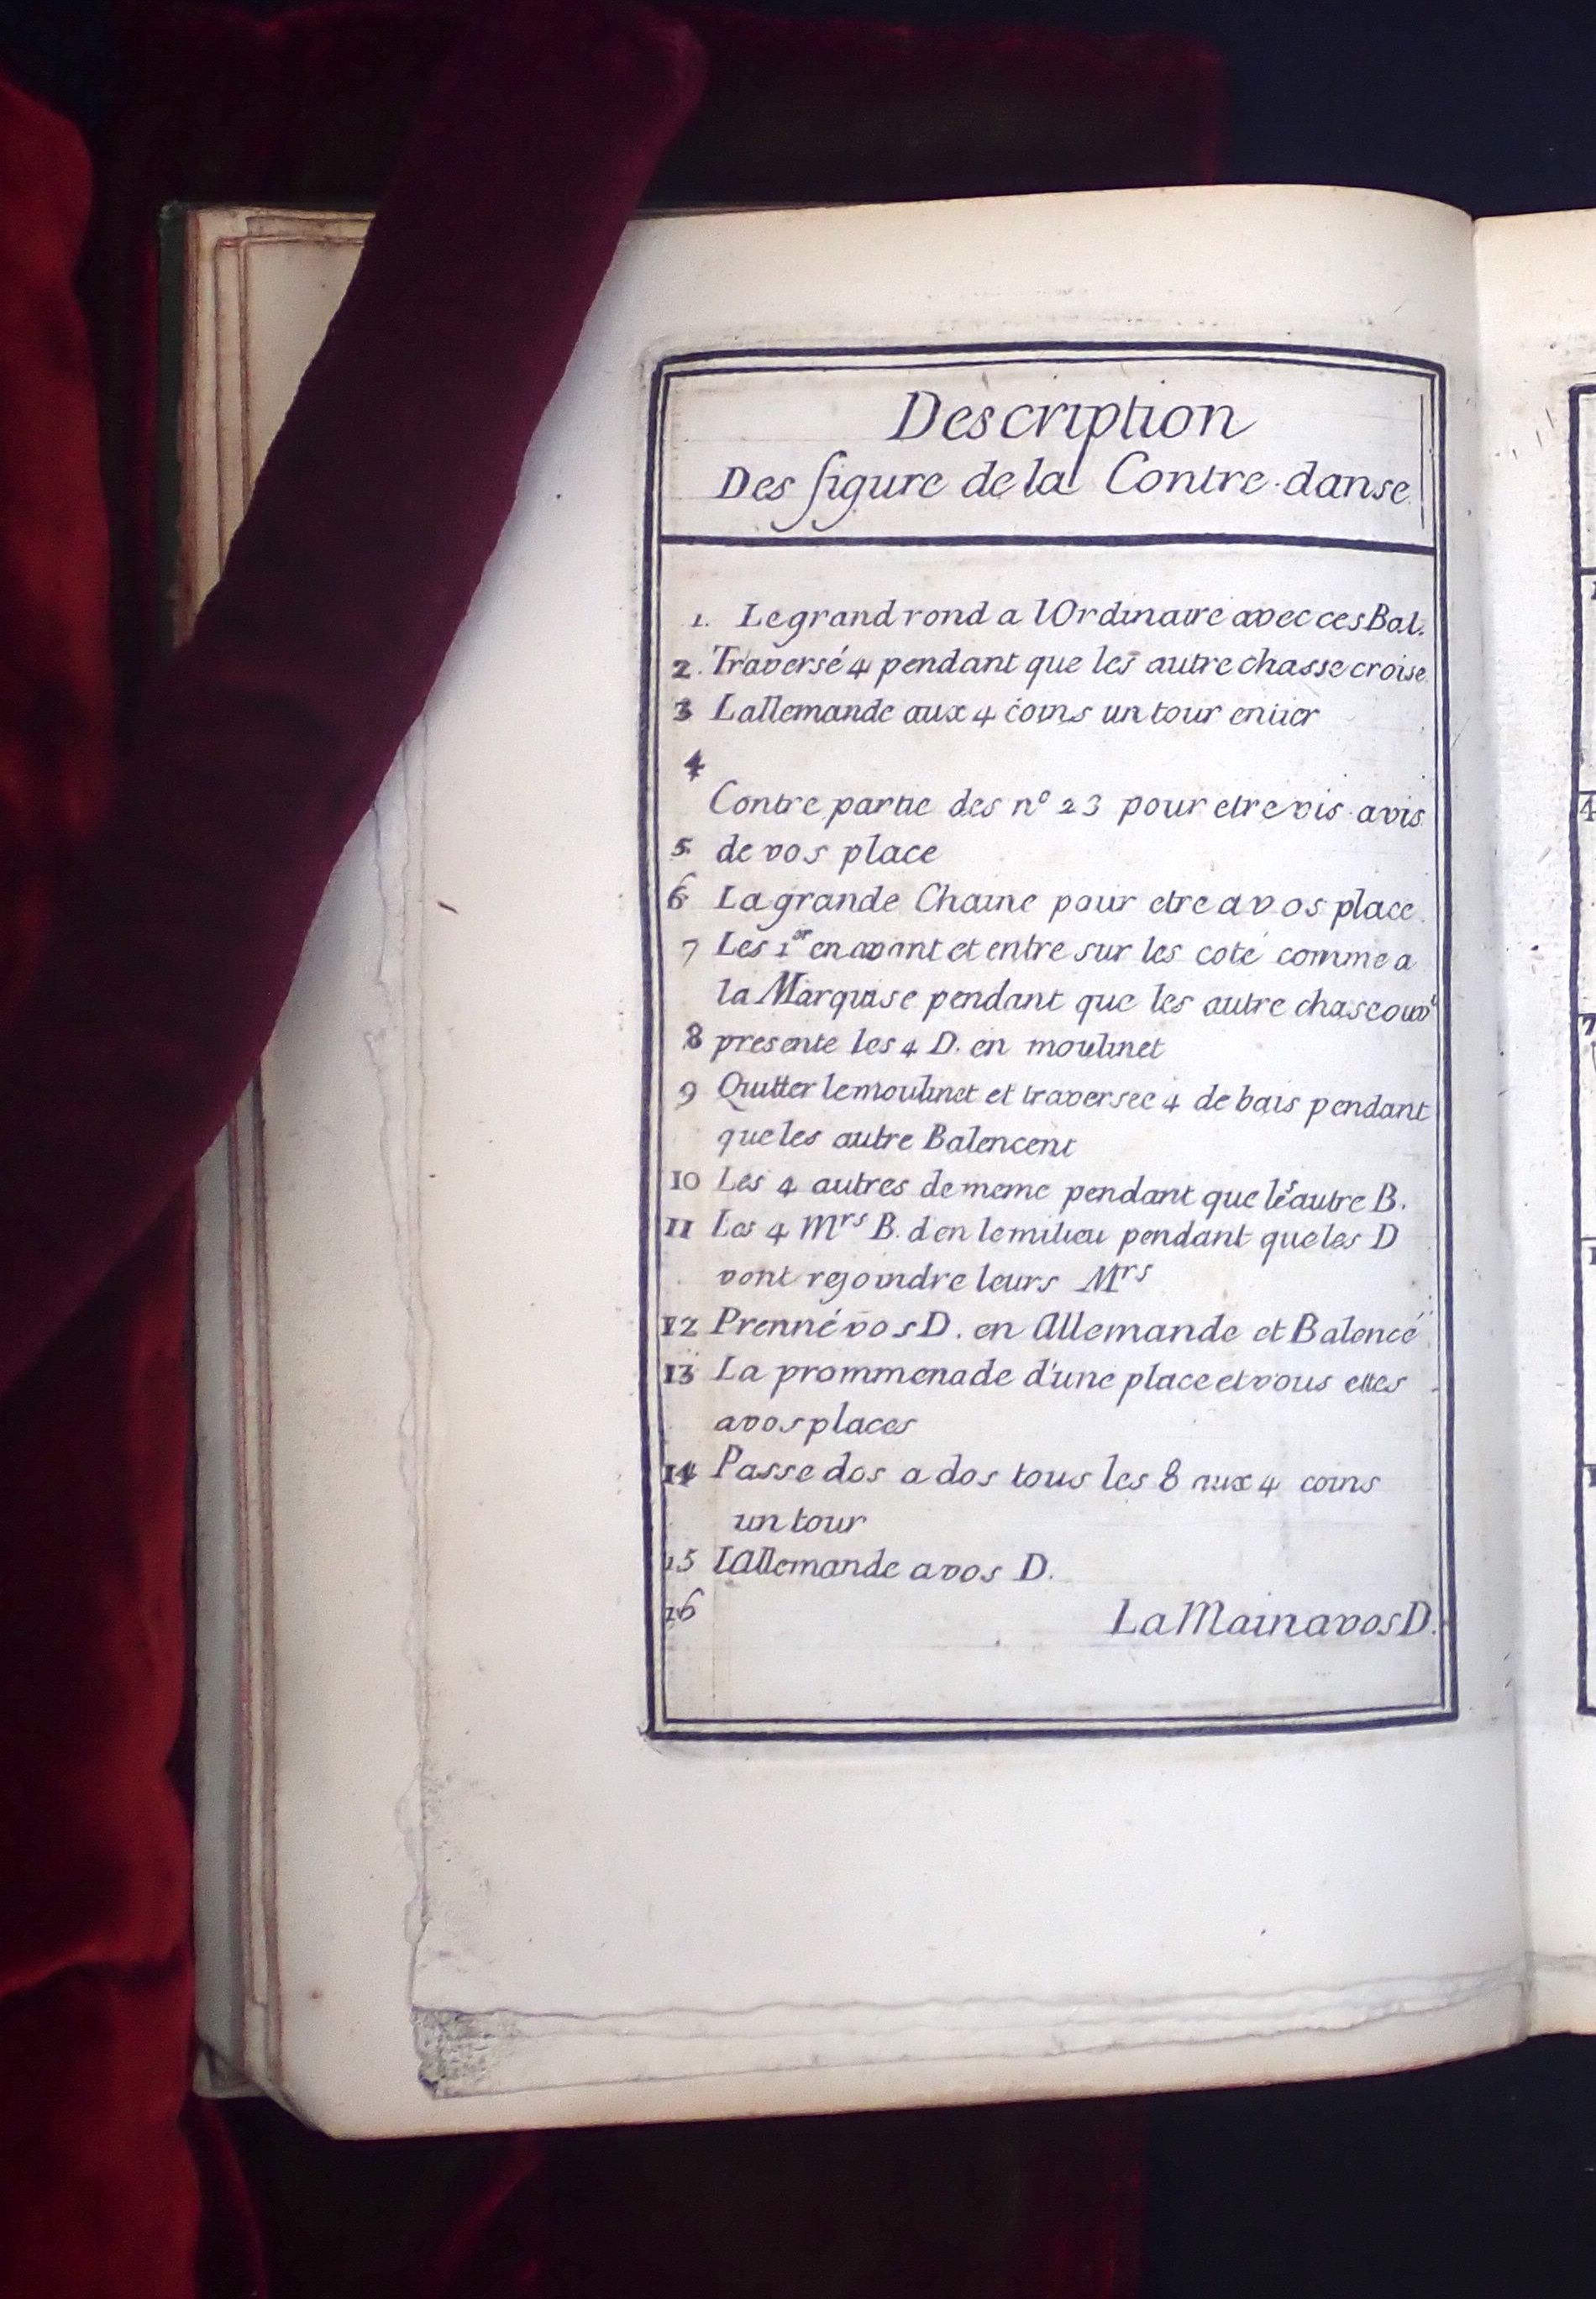 Description
Des figure de la Contre-danse
1. Le grand rond a lOrdinaire avec ces Bal.
2. Traversé 4 pendant que les autre chasse croise
3 Lallemande aux 4 coins un tour entier
4
Contre partie des n° 2 3 pour etre vis avis
5. de vos place
6 La grande Chaine pour etre a vos place
7 Les 1er en avant et entre sur les coté comme a
la Marquise pendant que les autre
8 presente les 4 D. en moulinet
9 Quitter le moulinet et traversee 4 de bais pendant
que les autre Balencent
10 Les 4 autres de meme pendant que les autre B.
11 Les 4 Mrs B. d'en le milieu pendant que les D
vont rejoindre leurs Mrs
12 Prenné vos D. en Allemande et Balencé
13 La prommenade d'une place et vous ettes
a vos places
14 Passe dos a dos tous les 8 aux 4 coins
un tour
15 LAllemande a vos D.
16 La Main a vos D.
4
7